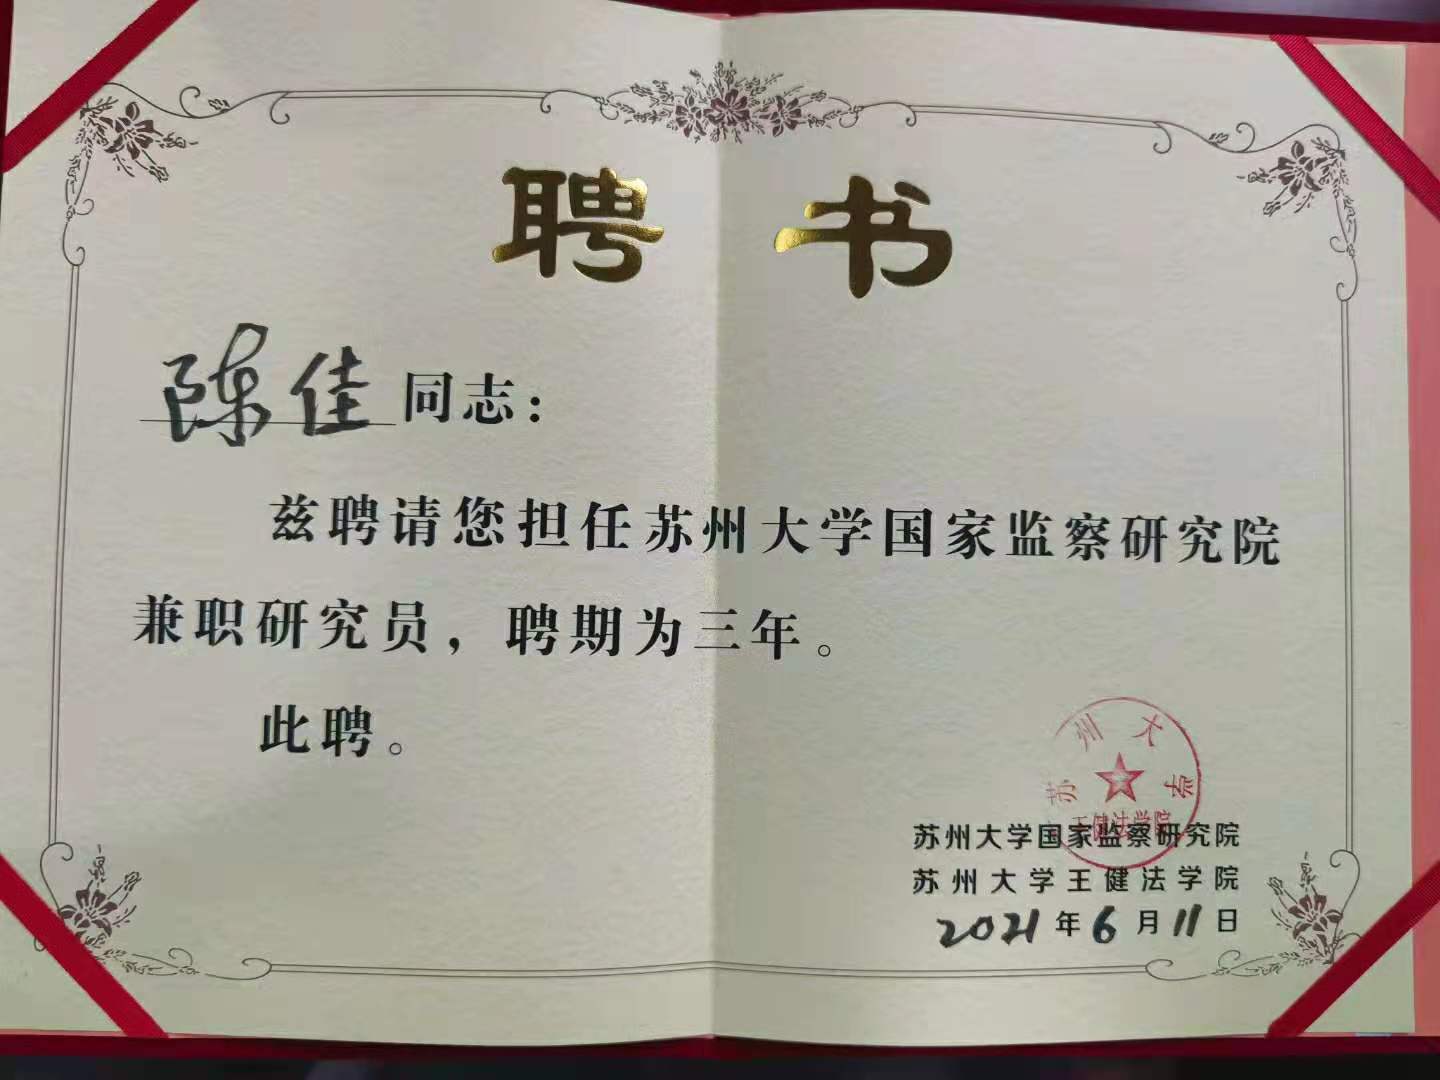 聘书
陈佳同志：
兹聘请您担任苏州大学国家监察研究院
兼职研究员，聘期为三年。
此聘。
苏州大学
王健法学院
苏州大学国家监察研究院
苏州大学王健法学院
2021年6月11日